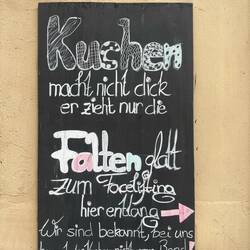 Kuchen
macht nicht dick
er zieht nur die
Falten glatt
zum Facelifting
hier entlang
wir sind bekannt, bei uns